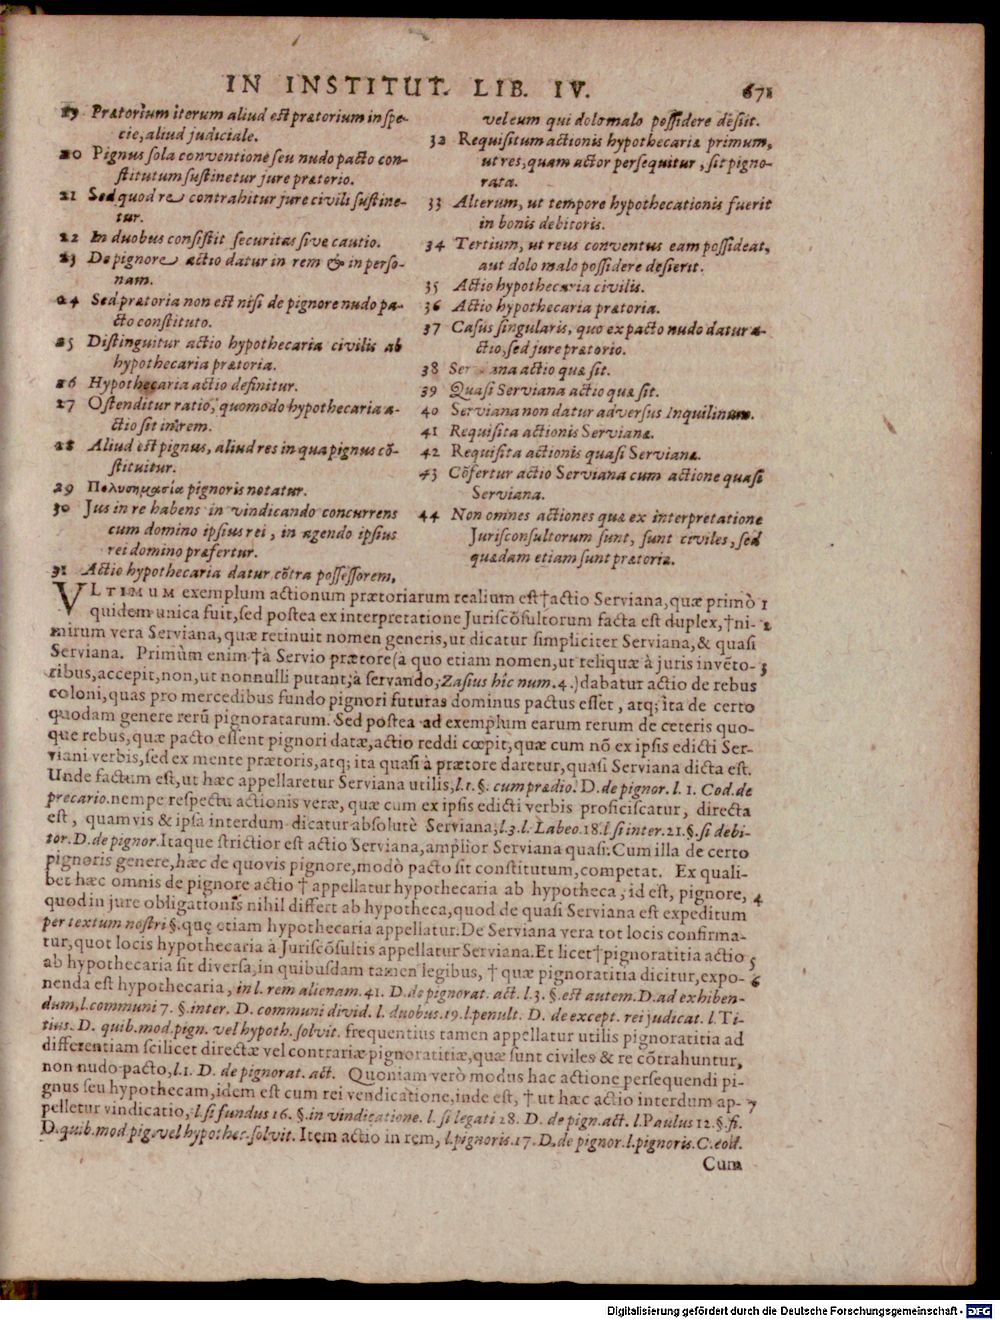 IN INSTITUT. LIB. IV. 671
19 Prætorium iterum aliud est prætorium in spe-
cie, aliud judiciale.
20 Pignus sola conventione seu nudo pacto con-
stitutum sustinetur jure prætorio.
21 Sed quod re contrahitur jure civili sustine-
tur.
22 In duobus consistit securitas sive cautio.
23 De pignore actio datur in rem & in perso-
nam.
24 Sed prætoria non est nisi de pignore nudo pa-
cto constituto.
25 Distinguitur actio hypothecaria civilis ab
hypothecaria prætoria.
26 Hypothecaria actio definitur.
27 Ostenditur ratio, quomodo hypothecaria a-
ctio sit in rem.
28 Aliud est pignus, aliud res in qua pignus cō-
stituitur.
29 Πολυσημασία pignoris notatur.
30 Jus in re habens in vindicando concurrens
cum domino ipsius rei, in agendo ipsius
rei domino præfertur.
31 Actio hypothecaria datur cōtra possessorem,
vel eum qui dolo malo possidere desiit.
32 Requisitum actionis hypothecariæ primum,
ut res, quam actor persequitur, sit pigno-
rata.
33 Alterum, ut tempore hypothecationis fuerit
in bonis debitoris.
34 Tertium, ut reus conventus eam possideat,
aut dolo malo possidere desierit.
35 Actio hypothecaria civilis.
36 Actio hypothecaria prætoria.
37 Casus singularis, quo ex pacto nudo datur a-
ctio, sed jure prætorio.
38 Serviana actio quæ sit.
39 Quasi Serviana actio quæ sit.
40 Serviana non datur adversus Inquilinum.
41 Requisita actionis Servianæ.
42 Requisita actionis quasi Servianæ.
43 Cōfertur actio Serviana cum actione quasi
Serviana.
44 Non omnes actiones quæ ex interpretatione
Jurisconsultorum sunt, sunt civiles, sed
quædam etiam sunt prætoriæ.
VLTIMUM exemplum actionum prætoriarum realium est † actio Serviana, quæ primò 1
quidem unica fuit, sed postea ex interpretatione Juriscōsultorum facta est duplex, † ni- 2
mirum vera Serviana, quæ retinuit nomen generis, ut dicatur simpliciter Serviana, & quasi
Serviana. Primùm enim † à Servio prætore (à quo etiam nomen, ut reliquæ à juris invēto- 3
ribus, accepit, non, ut nonnulli putant, à servando, Zasius hîc num. 4.) dabatur actio de rebus
coloni, quas pro mercedibus fundo pignori futuras dominus pactus esset, atq; ita de certo
quodam genere rerū pignoratarum. Sed postea ad exemplum earum rerum de ceteris quo-
que rebus, quæ pacto essent pignori datæ, actio reddi cœpit, quæ cum nō ex ipsis edicti Ser-
viani verbis, sed ex mente prætoris, atq; ita quasi à prætore daretur, quasi Serviana dicta est.
Unde factum est, ut hæc appellaretur Serviana utilis, l. 1. §. cum prædio. D. de pignor. l. 1. Cod. de
precario. nempe respectu actionis veræ, quæ cum ex ipsis edicti verbis proficiscatur, directa
est, quamvis & ipsa interdum dicatur absolutè Serviana, l. 3. l. Labeo. 18. l. si inter. 21. §. si debi-
tor. D. de pignor. Itaque strictior est actio Serviana, amplior Serviana quasi: Cum illa de certo
pignoris genere, hæc de quovis pignore, modò pacto sit constitutum, competat. Ex quali-
bet hæc omnis de pignore actio † appellatur hypothecaria ab hypotheca, id est, pignore, 4
quod in jure obligationis nihil differt ab hypotheca, quod de quasi Serviana est expeditum
per textum nostri §. que etiam hypothecaria appellatur. De Serviana vera tot locis confirma-
tur, quot locis hypothecaria à Juriscōsultis appellatur Serviana. Et licet † pignoratitia actio 5
ab hypothecaria sit diversa, in quibusdam tamen legibus, † quæ pignoratitia dicitur, expo- 6
nenda est hypothecaria, in l. rem alienam. 41. D. de pignorat. act. l. 3. §. est autem. D. ad exhiben-
dum, l. communi 7. §. inter. D. communi divid. l. duobus. 19. l. penult. D. de except. rei judicat. l. Ti-
tius. D. quib. mod. pign. vel hypoth. solvit. frequentius tamen appellatur utilis pignoratitia ad
differentiam scilicet directæ vel contrariæ pignoratitiæ, quæ sunt civiles & re cōtrahuntur,
non nudo pacto, l. 1. D. de pignorat. act. Quoniam verò modus hac actione persequendi pi-
gnus seu hypothecam, idem est cum rei vendicatione, inde est, † ut hæc actio interdum ap- 7
pelletur vindicatio, l. si fundus 16. §. in vindicatione. l. si legati 28. D. de pign. act. l. Paulus 12. §. fi.
D. quib. mod pig. vel hypothec. solvit. Item actio in rem, l. pignoris. 17. D. de pignor. l. pignoris. C. eod.
Cum
Digitalisierung gefördert durch die Deutsche Forschungsgemeinschaft - DFG